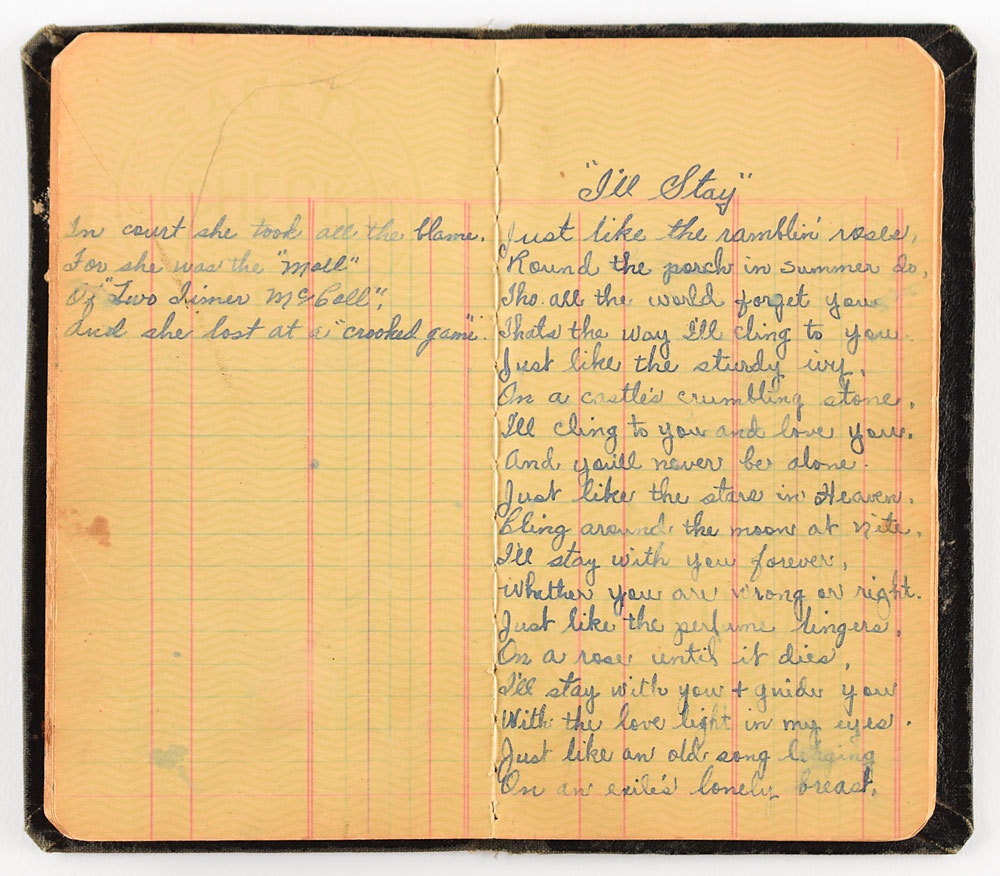 SAFETY
CHECK
In court she took all the blame.
For she was the "Moll"
Of "Two Timer McCall",
And she lost at a "crooked game".
"I'll Stay"
Just like the ramblin' roses,
'Round the porch in summer do,
Tho. all the world forget you
Thats the way I'll cling to you.
Just like the sturdy ivy,
On a castle's crumbling stone,
I'll cling to you and love you.
And you'll never be alone.
Just like the stars in Heaven,
Cling around the moon at nite,
I'll stay with you forever,
Whether you are wrong or right.
Just like the perfume lingers,
On a rose until it dies,
I'll stay with you + guide you
With the love light in my eyes.
Just like an old song
On an exile's lonely breast,